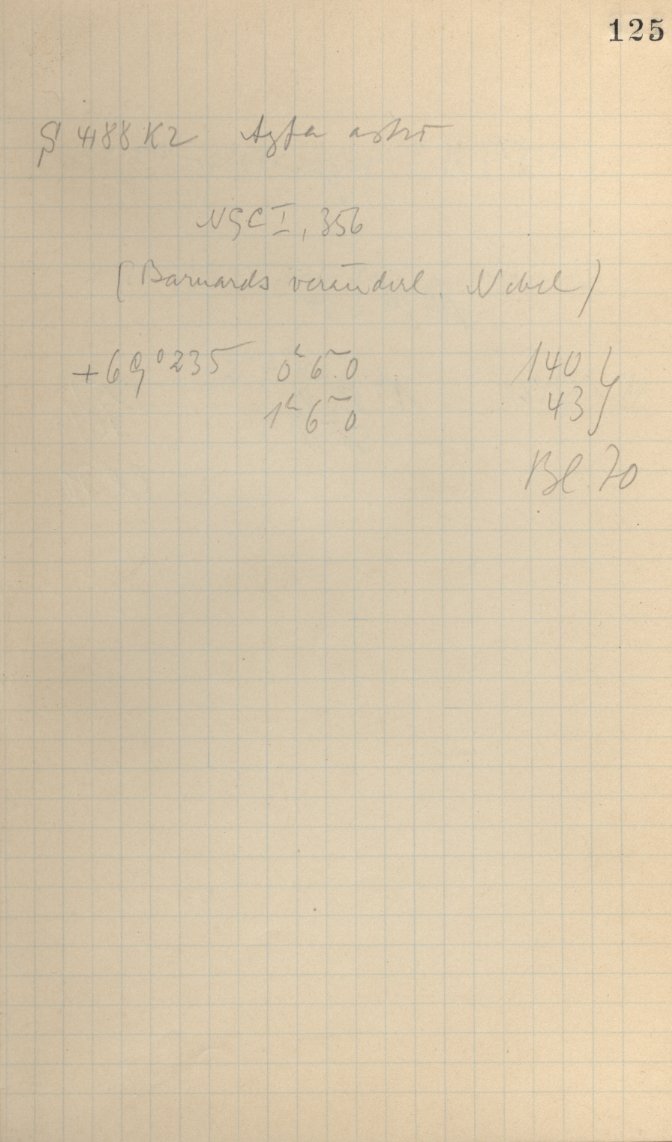 125
4188 K2 Agfa astro
NGC I, 356
(Barnards veränderl. Nebel)
+69°235 0ʰ6ᵐ.0 140
1ʰ6ᵐ0 43
Bl 70